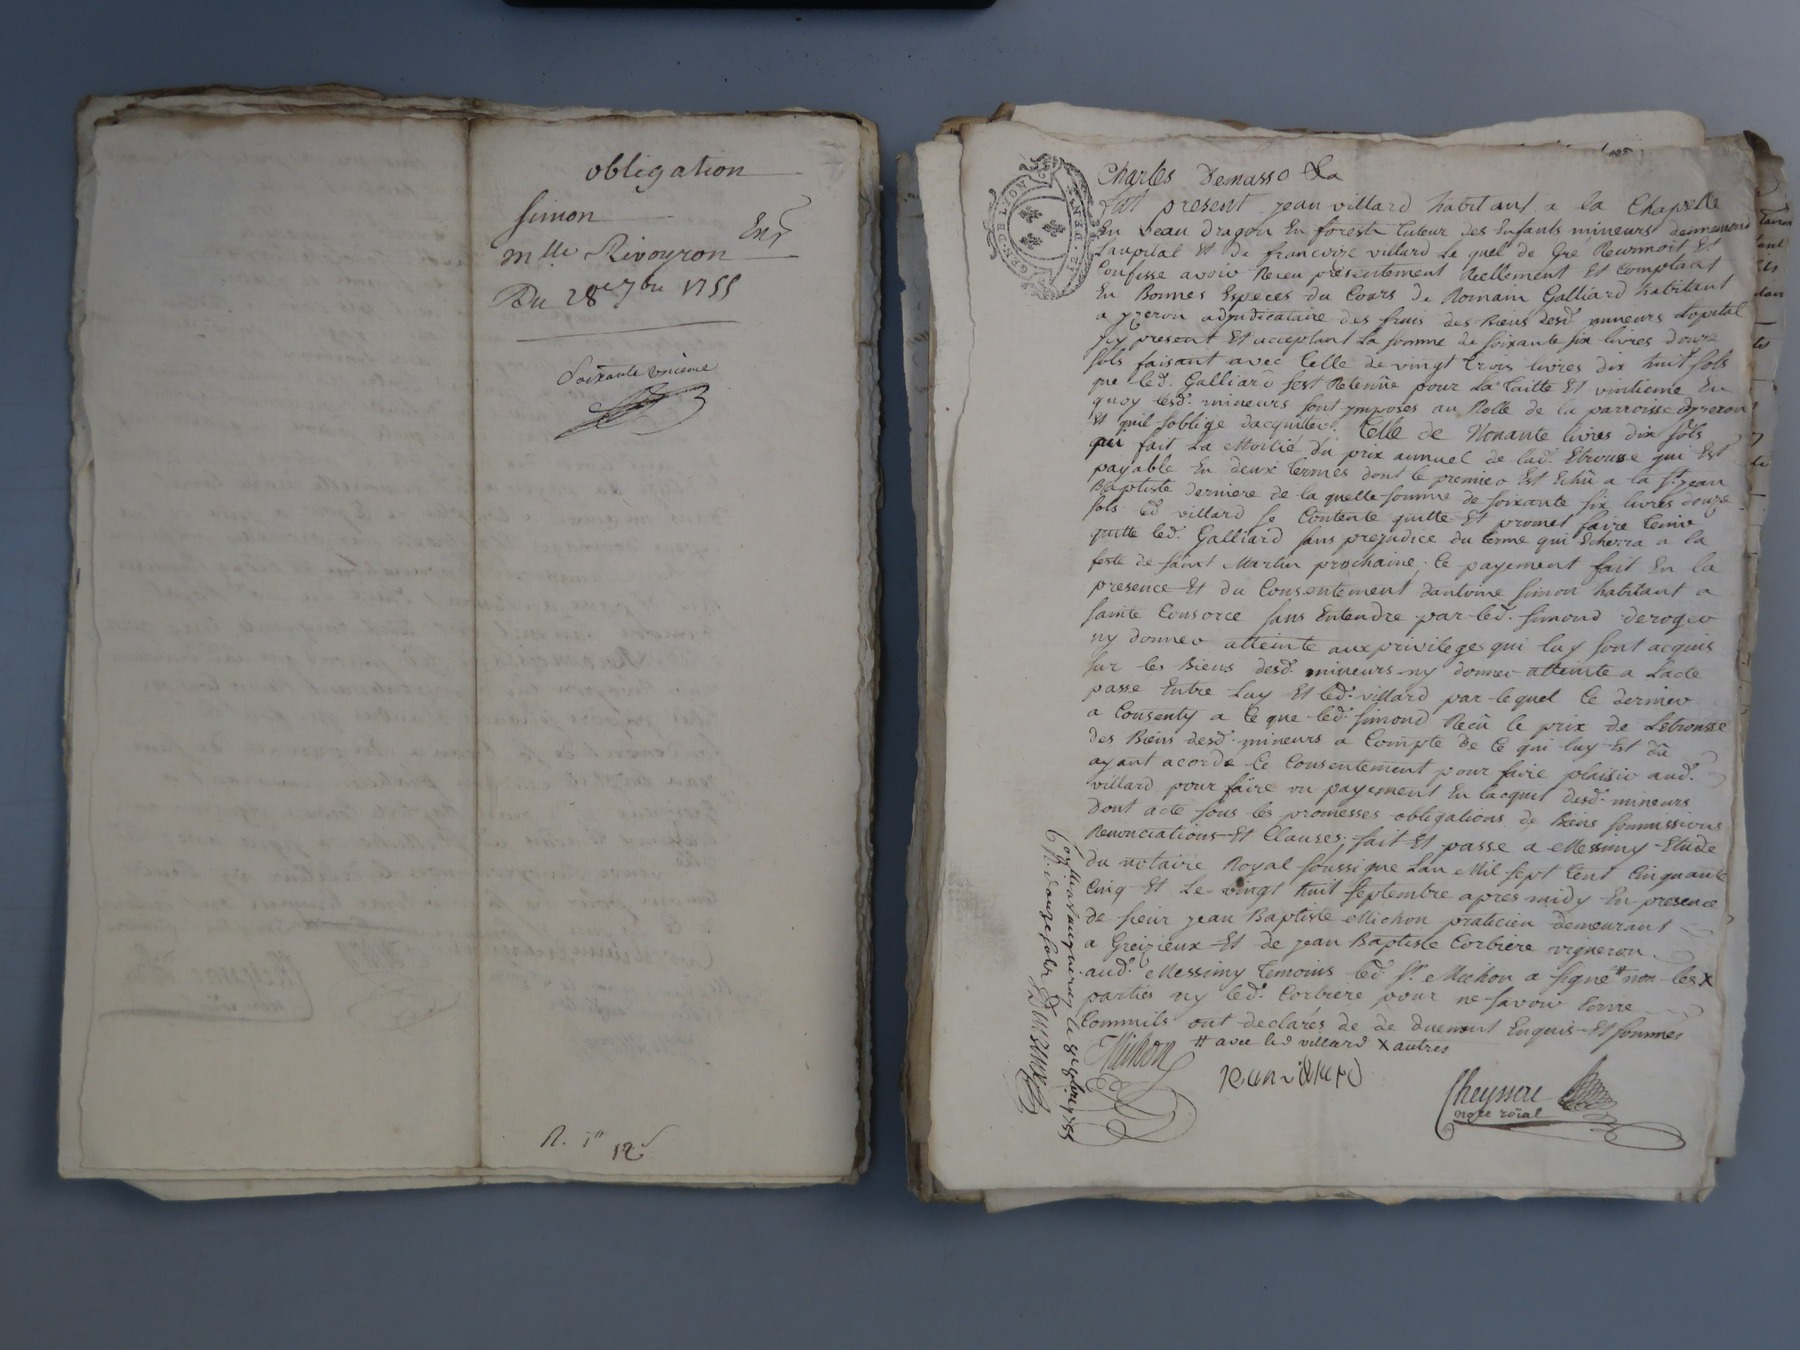 obligation
Simon
Enr
mlle Rivoyron
Du 28e 7bre 1755
Soixante onzieme
R. 1# 12s
GEN. DE LYON
2 S. DEN.
Charles Demasso &a
fut present jean villard habitant a la Chapelle
En veau dragon En forestz tuteur des Enfants mineurs
Laupital Et de francoize villard Le quel de Gré Reconnoit Et
Confesse avoir Receu présentement Reellement Et Comptant
En Bonnes Especes du Cours de Romain Galliard habitant
a yzeron adjudicataire des fruis des Biens desd. mineurs Lopital
jcy present Et acceptant La somme de soixante six livres douze
sols faisant avec Celle de vingt trois livres dix huit sols
que led. Galliard sest Retenüe pour La Taille Et vintieme En
quoy lesd. mineurs sont ymposés au Rolle de la parroisse dyzeron
Et quil soblige dacquitter. Celle de Nonante livres dix sols
qui fait La Moitié du prix annuel de lad. Etrousse qui Est
payable En deux termes dont le premier Est Echü a la St. jean
Baptiste derniere de la quelle somme de soixante six livres douze
sols led villard se Contente quitte Et promet faire tenir
quitte led. Galliard sans prejudice du terme qui Echerra a la
feste de saint Martin prochaine, Ce payement fait En la
presence Et du Consentement dantoine Simon habitant a
Sainte Consorce sans Entendre par led. Simond deroger
ny donner atteinte aux privileges qui luy sont acquis
sur les Biens desd. mineurs ny donner atteinte a Lacte
passé Entre Luy Et led. villard par lequel Ce dernier
a Consenty a Ce que led. Simond Reçu le prix de Letrousse
des Biens desd. mineurs a Compte de Ce qui luy Est dû
ayant acordé Ce Consentement pour faire plaisir aud.
villard pour faire un payement En lacquit desd. mineurs
Dont acte sous les promesses obligations de Biens soumissions
Renonciations Et Clauses; fait Et passé a Messimy Etude
du notaire Royal soussigné Lan Mil sept Cent Cinquante
Cinq Et Le vingt huit septembre apres midy En presence
de sieur jean Baptiste Michon praticien demeurant
a Greizieux Et de jean Baptiste Corbiere vigneron
aud. Messimy temoins led. Sr. Michon a signé # non les X
parties ny led. Corbiere pour ne savoir Ecrire
Commils ont declarés de de duement Enquis Et sommés
# avec led villard X autres
Michon
jean villard
Cheyssere
nore roial
vaugneray le 8e 8bre 1755
R. douze sols